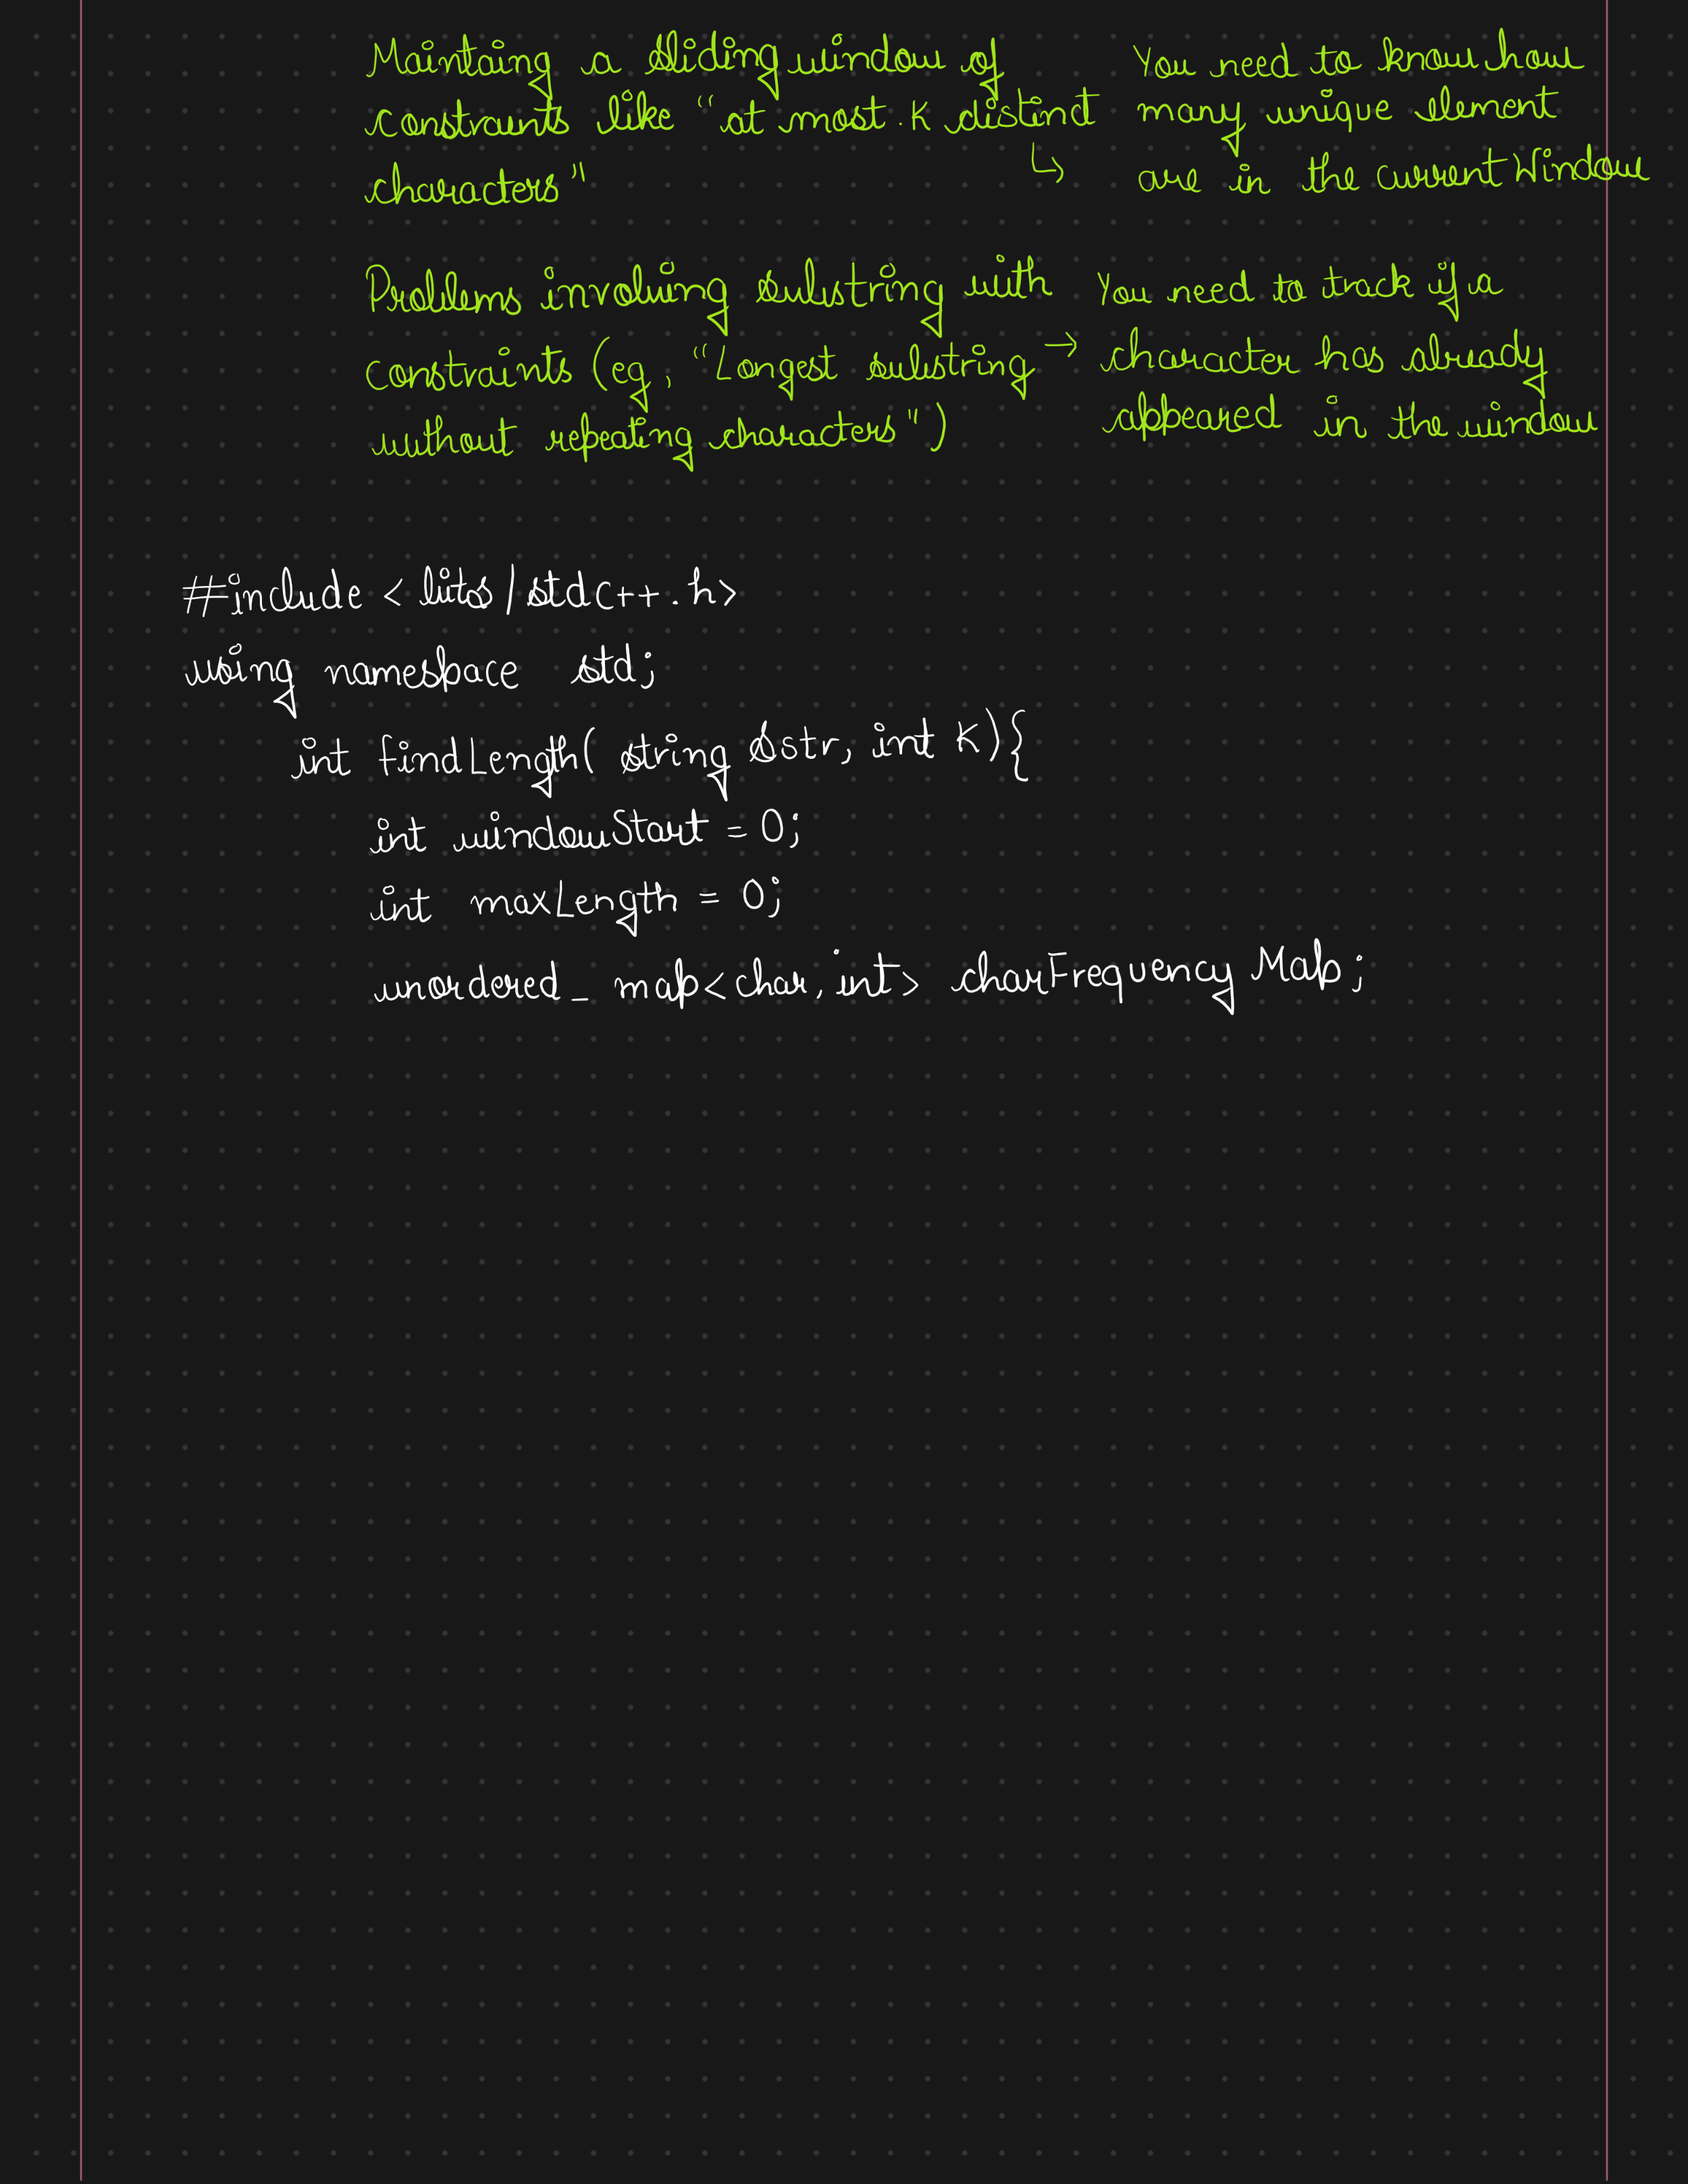 Maintaing a sliding window of
constraints like "at most K distinct
characters"
↳ You need to know how
many unique element
are in the current Window
Problems involving substring with
constraints (eg, "Longest substring
without repeating characters")
→ You need to track if a
character has already
appeared in the window
#include <bits/stdc++.h>
using namespace std;
int findLength( string &str, int K){
int windowStart = 0;
int maxLength = 0;
unordered_map<char, int> charFrequencyMap;